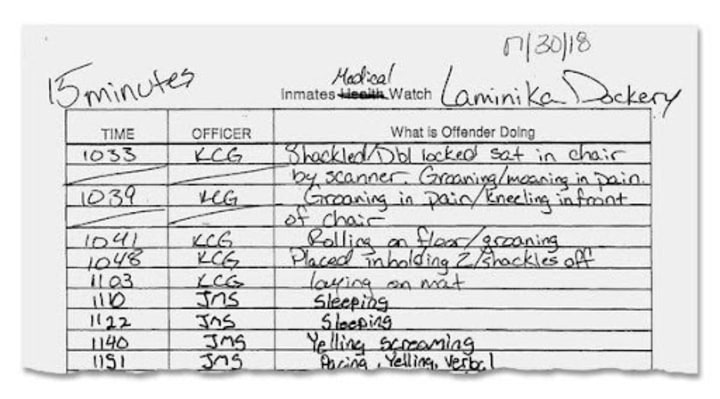 07/30/18
15 minutes
Medical
Inmates Health Watch Laminika Dockery
TIME OFFICER What is Offender Doing
1033 KCG Shackled/Dbl locked sat in chair
by scanner. Groaning/moaning in pain.
1039 KCG Groaning in pain/kneeling in front
of chair
1041 KCG Rolling on floor/groaning
1048 KCG Placed in holding 2/shackles off
1103 KCG laying on mat
1110 JMS Sleeping
1122 JMS Sleeping
1140 JMS Yelling screaming
1151 JMS Pacing, Yelling, Verbal